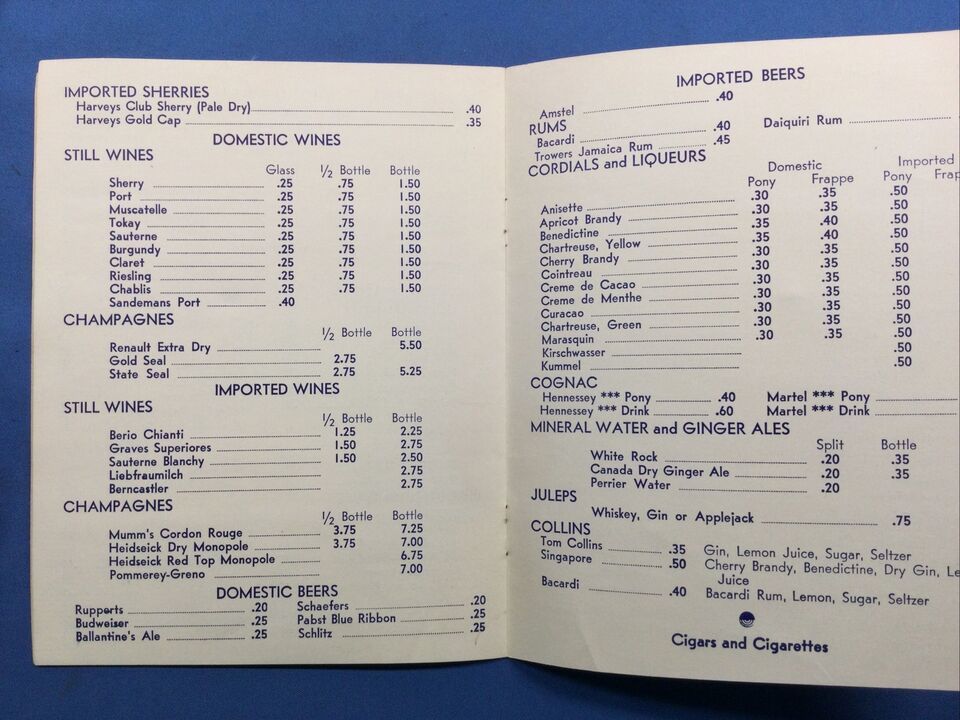 IMPORTED SHERRIES
Harveys Club Sherry (Pale Dry) .40
Harveys Gold Cap .35
DOMESTIC WINES
STILL WINES
Glass 1/2 Bottle Bottle
Sherry .25 .75 1.50
Port .25 .75 1.50
Muscatelle .25 .75 1.50
Tokay .25 .75 1.50
Sauterne .25 .75 1.50
Burgundy .25 .75 1.50
Claret .25 .75 1.50
Riesling .25 .75 1.50
Chablis .25 .75 1.50
Sandemans Port .40
CHAMPAGNES
1/2 Bottle Bottle
Renault Extra Dry 5.50
Gold Seal 2.75
State Seal 2.75 5.25
IMPORTED WINES
STILL WINES
1/2 Bottle Bottle
Berio Chianti 1.25 2.25
Graves Superiores 1.50 2.75
Sauterne Blanchy 1.50 2.50
Liebfraumilch 2.75
Berncastler 2.75
CHAMPAGNES
1/2 Bottle Bottle
Mumm's Cordon Rouge 3.75 7.25
Heidseick Dry Monopole 3.75 7.00
Heidseick Red Top Monopole 6.75
Pommerey-Greno 7.00
DOMESTIC BEERS
Rupperts .20 Schaefers .20
Budweiser .25 Pabst Blue Ribbon .25
Ballantine's Ale .25 Schlitz .25
IMPORTED BEERS
Amstel .40
RUMS
Bacardi .40 Daiquiri Rum
Trowers Jamaica Rum .45
CORDIALS and LIQUEURS
Domestic Imported
Pony Frappe Pony
Anisette .30 .35 .50
Apricot Brandy .30 .35 .50
Benedictine .35 .40 .50
Chartreuse, Yellow .35 .40 .50
Cherry Brandy .30 .35 .50
Cointreau .30 .35 .50
Creme de Cacao .30 .35 .50
Creme de Menthe .30 .35 .50
Curacao .30 .35 .50
Chartreuse, Green .30 .35 .50
Marasquin .30 .35 .50
Kirschwasser .50
Kummel .50
COGNAC
Hennessey *** Pony .40 Martel *** Pony
Hennessey *** Drink .60 Martel *** Drink
MINERAL WATER and GINGER ALES
Split Bottle
White Rock .20 .35
Canada Dry Ginger Ale .20 .35
Perrier Water .20
JULEPS
Whiskey, Gin or Applejack .75
COLLINS
Tom Collins .35 Gin, Lemon Juice, Sugar, Seltzer
Singapore .50 Cherry Brandy, Benedictine, Dry Gin,
Juice
Bacardi .40 Bacardi Rum, Lemon, Sugar, Seltzer
Cigars and Cigarettes